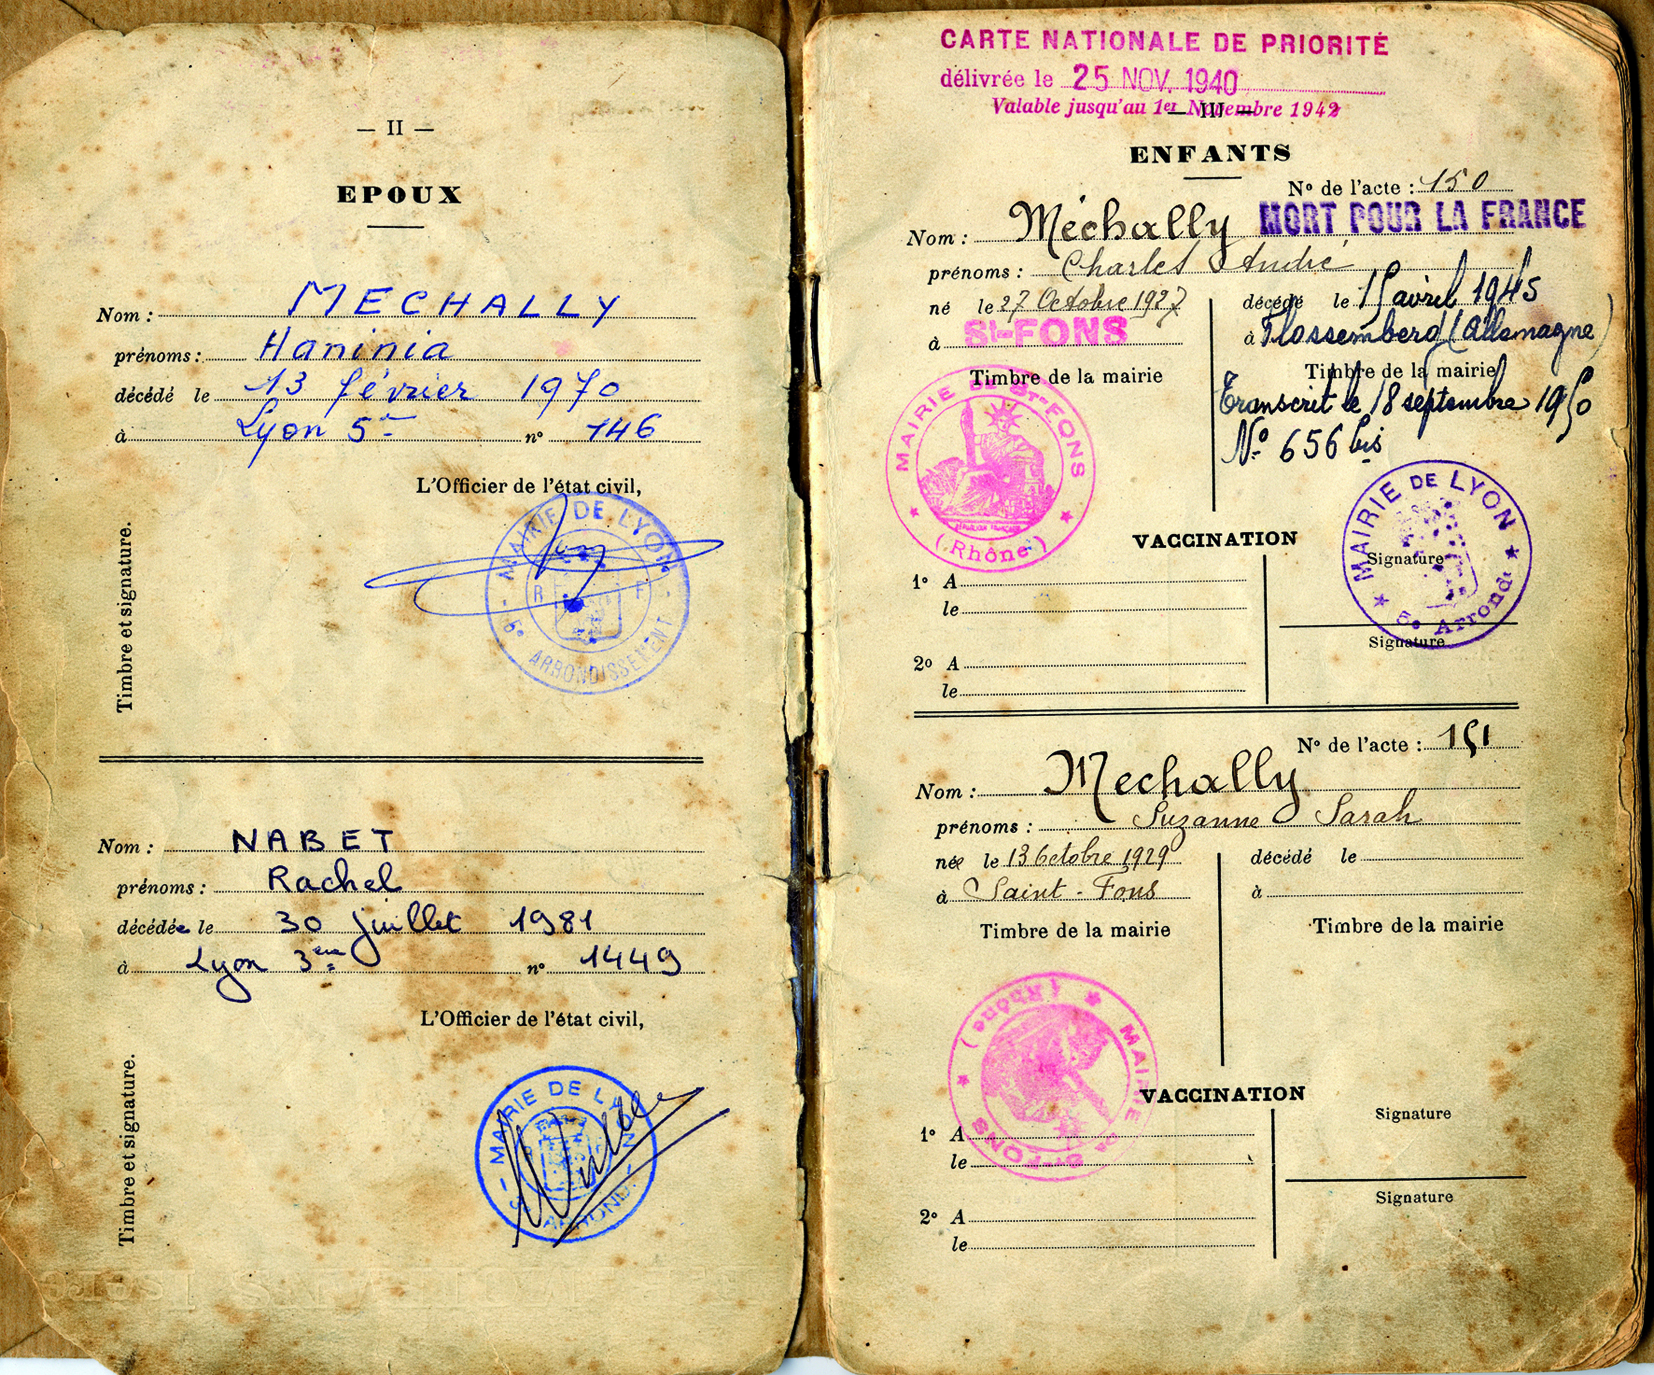 — II —
EPOUX
Nom : MECHALLY
prénoms : Haninia
décédé le 13 février 1970
à Lyon 5e n° 146
L'Officier de l'état civil,
MAIRIE DE LYON
R F
5e ARRONDISSEMENT
Timbre et signature.
Nom : NABET
prénoms : Rachel
décédée le 30 juillet 1981
à Lyon 3ème n° 1449
L'Officier de l'état civil,
MAIRIE DE LYON
Timbre et signature.
CARTE NATIONALE DE PRIORITÉ
délivrée le 25 NOV. 1940
Valable jusqu'au 1er Novembre 1942
— III —
ENFANTS
N° de l'acte : 150
MORT POUR LA FRANCE
Nom : Méchally
prénoms : Charles André
né le 27 Octobre 1927
à St-FONS
Timbre de la mairie
MAIRIE DE St-FONS
RÉPUBLIQUE FRANÇAISE
(Rhône)
décédé le 15 avril 1945
à Flossemberd (Allemagne)
Timbre de la mairie
Transcrit le 18 septembre 1950
N° 656 bis
MAIRIE DE LYON
5e Arrondt
VACCINATION
1° A
le
2° A
le
Signature
Signature
N° de l'acte : 151
Nom : Mechally
prénoms : Suzanne Sarah
née le 13 Octobre 1929
à Saint-Fons
Timbre de la mairie
MAIRIE DE St-FONS
(Rhône)
décédé le
à
Timbre de la mairie
VACCINATION
1° A
le
2° A
le
Signature
Signature